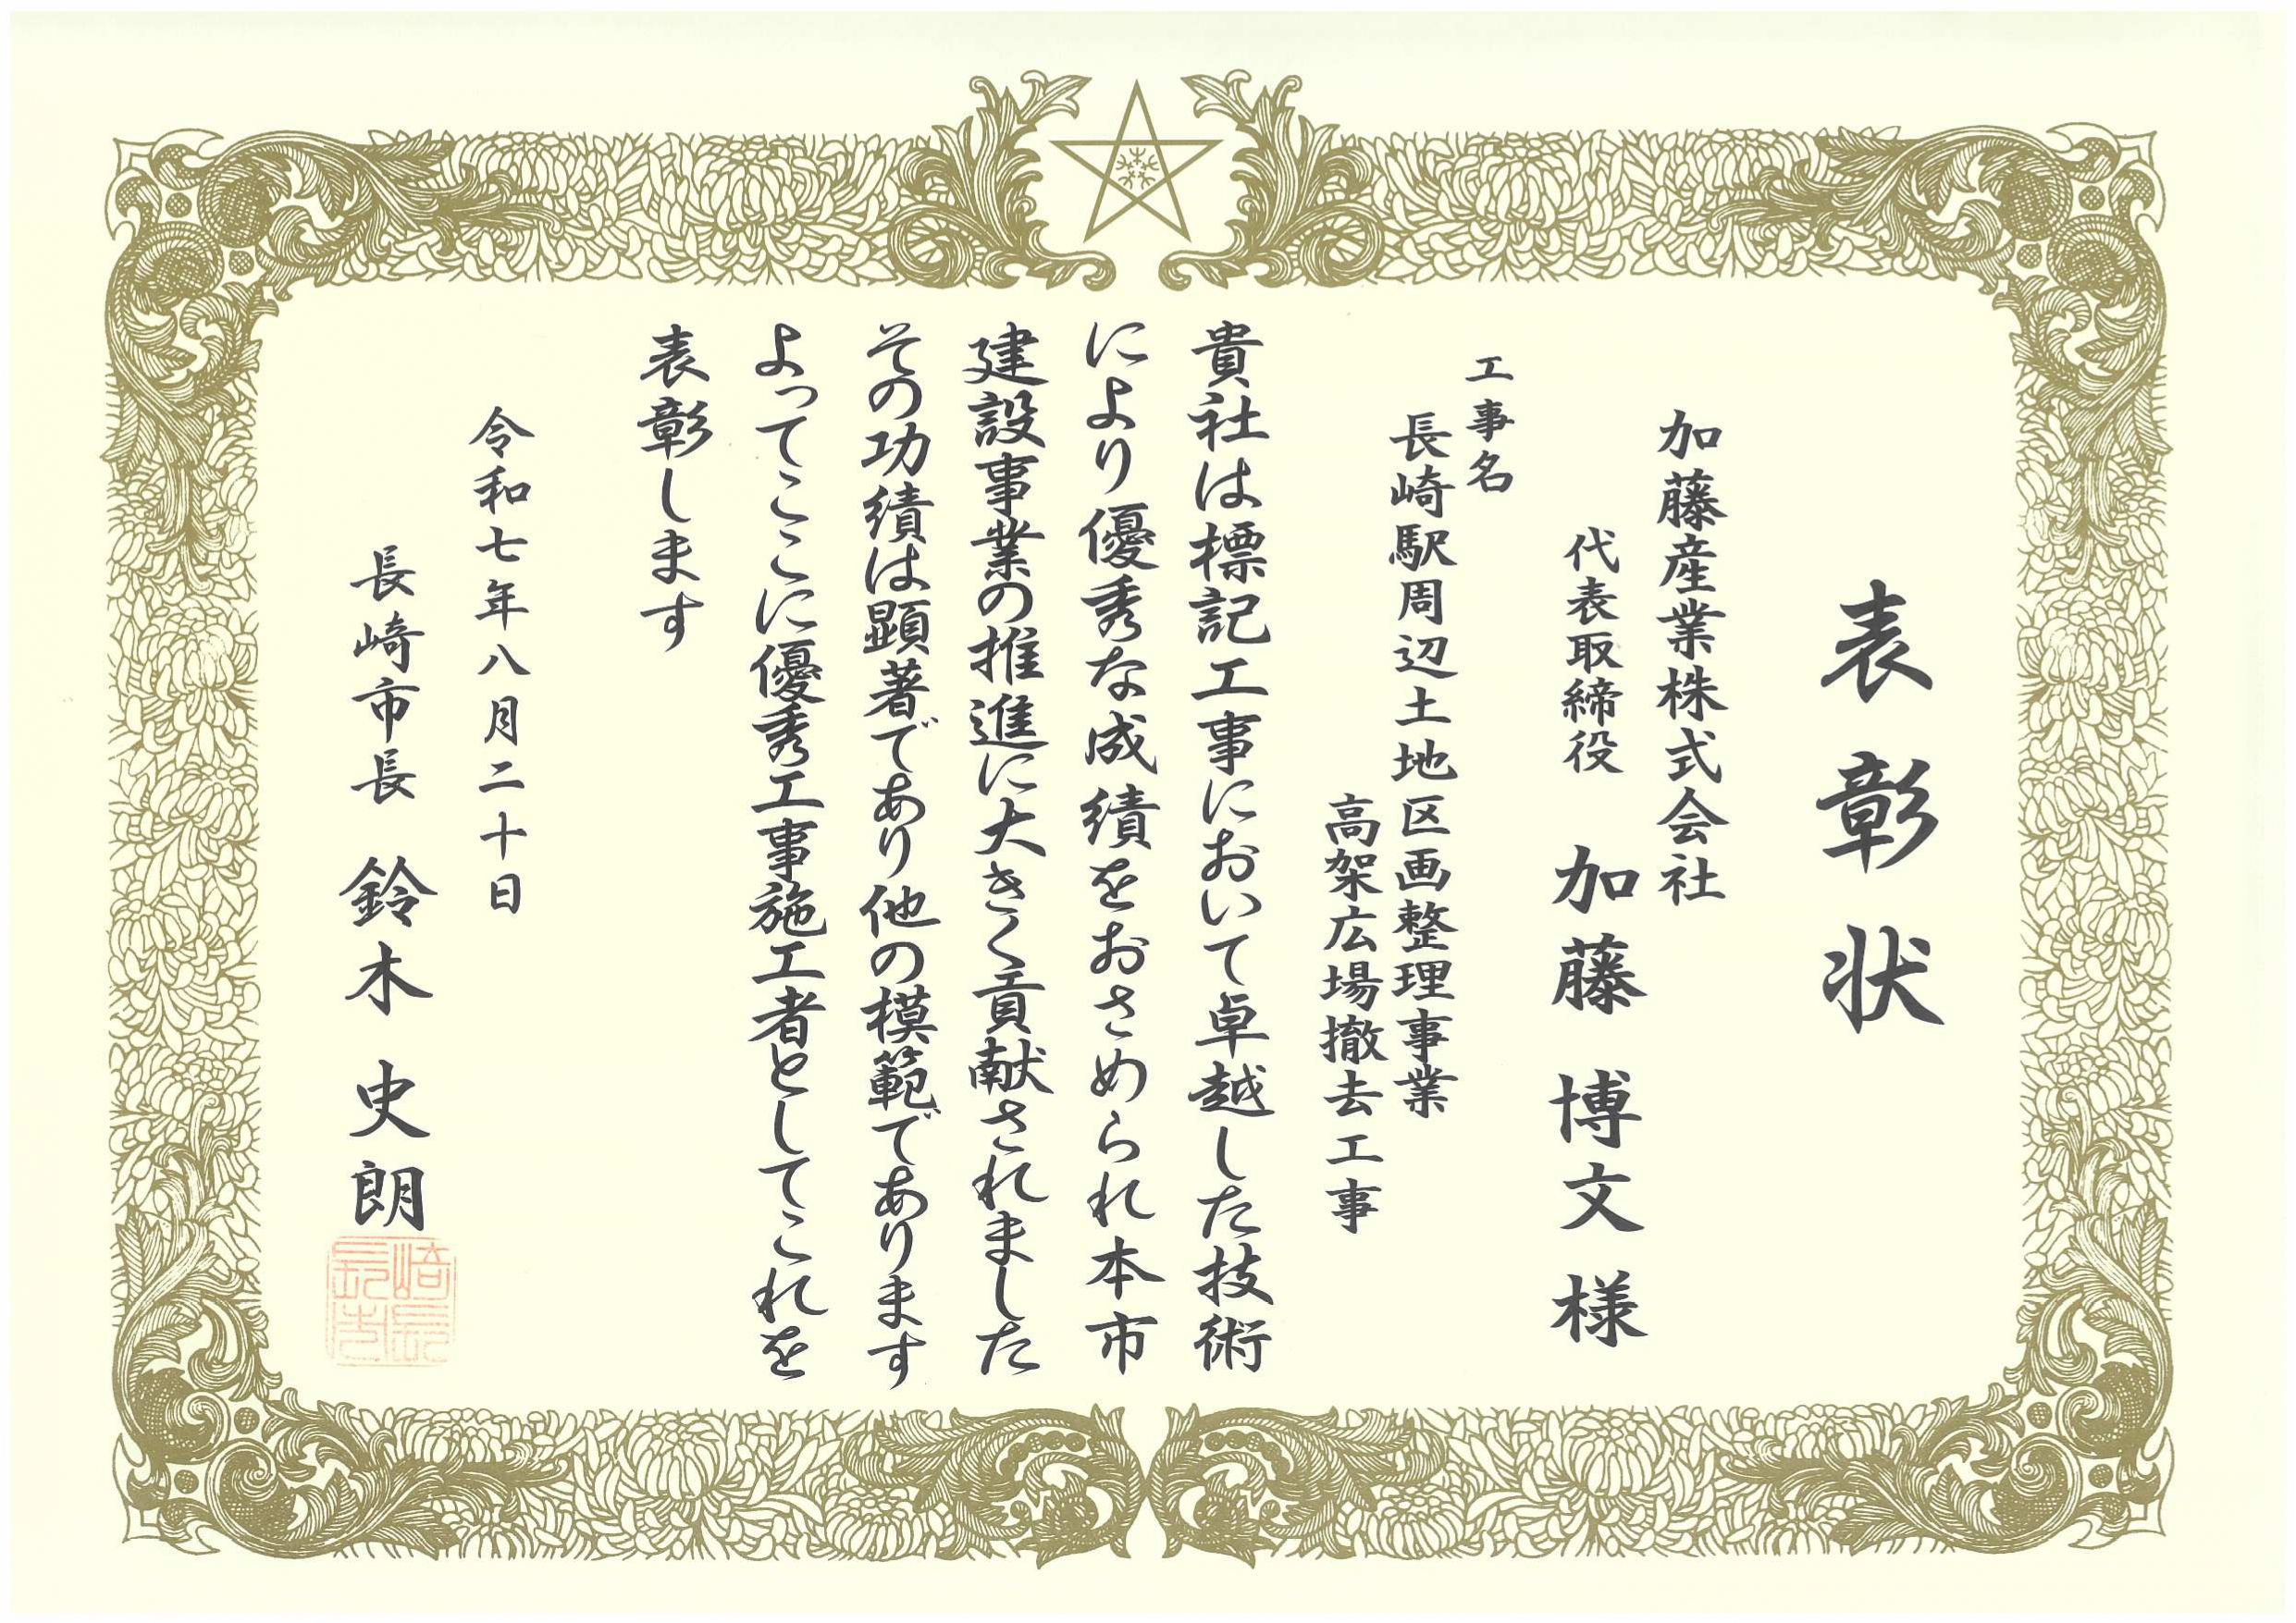 表彰状
加藤産業株式会社
代表取締役 加藤 博文 様
工事名
長崎駅周辺土地区画整理事業
高架広場撤去工事
貴社は標記工事において卓越した技術
により優秀な成績をおさめられ本市
建設事業の推進に大きく貢献されました
その功績は顕著であり他の模範であります
よってここに優秀工事施工者としてこれを
表彰します
令和七年八月二十日
長崎市長 鈴木 史朗